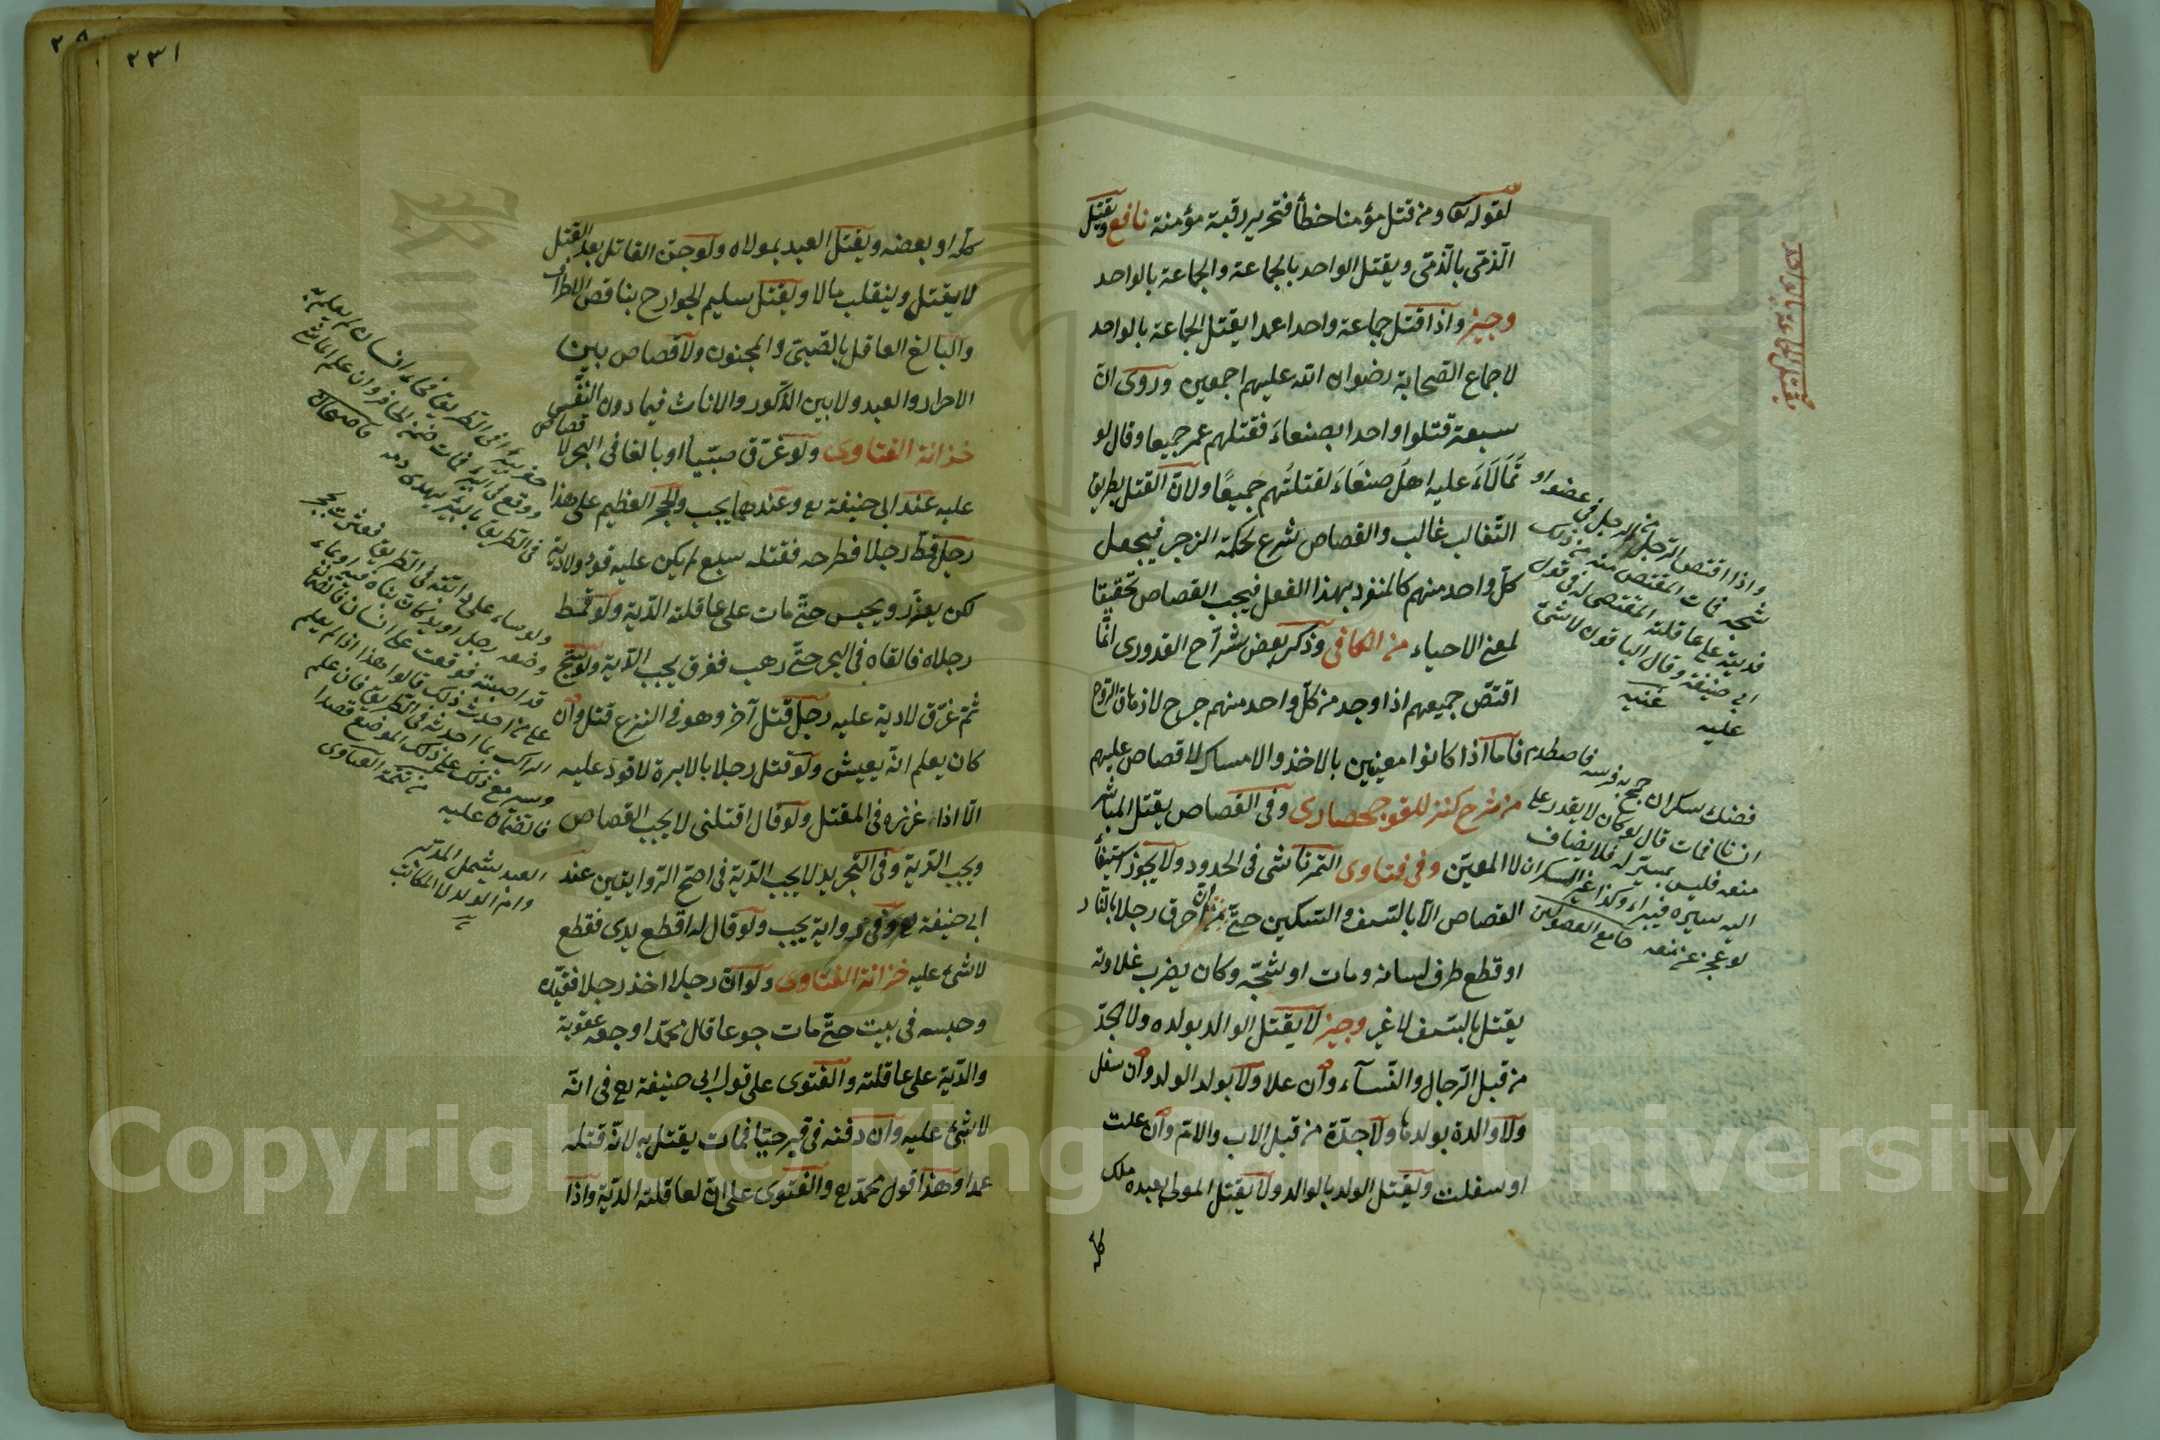 لقوله تعا ومن قتل مؤمنا خطأ فتحرير رقبة مؤمنة نافع ويقتل
الذمّى بالذمّى ويقتل الواحد بالجماعة والجماعة بالواحد
وجيز واذا قتل جماعة واحدا عمدا يقتل الجماعة بالواحد
لاجماع الصحابة رضوان الله عليهم اجمعين وروى ان
سبعة قتلوا واحدا بصنعاء فقتلهم عمر جميعا وقال لو
تمالاء عليه اهل صنعاء لقتلتهم جميعًا ولان القتل بطريق
التغالب غالب والقصاص شرع لحكمة الزجر فيجعل
كل واحد منهم كالمنفرد بهذا الفعل فيجب القصاص تحقيقا
لمعنى الاحياء من الكافى وذكر بعض شراح القدورى انما
اقتصّ جميعهم اذا وجد من كل واحد منهم جرح لازهاق الروح
فاما اذا كانوا معينين بالاخذ والامساك لا قصاص عليهم
من شرح كنز للقوجحصارى وفى القصاص يقتل المباشر
لا المعين وفى فتاوى التمرتاشى فى الحدود ولا يجوز استيفاء
القصاص الا بالسيف والسكين حتى احرق رجلا بالنار
او قطع طرف لسانه ومات او شجّه وكان يضرب علاوته
يقتل بالسيف لا غير وجيز لا يقتل الوالد بولده ولا الجد
من قبل الرجال والنسآء وان علا ولا بولد الولد وان سفل
ولا والدة بولدها ولا جدّة من قبل الاب والام وان علت
او سفلت ويقتل الولد بالوالد ولا يقتل المولى بعبده ملك
كله
واذا اقتص الرجل من الرجل فى عضو او
شجه فمات المقتص منه من ذلك
فديته على عاقلة المقتص له فى قول
ابى حنيفة وقال الباقون لا شئ
عليه غنيه
سكران جمح به فرسه فاصطدم
انسانا فمات قال لو كان لا يقدر على
منعه فليس بمسير له فلا يضاف
اليه سيره فيبراء وكذا غير السكران
لو عجز عن منعه جامع الفصولين
٢٣١
كله او بعضه ويقتل العبد بمولاه ولو جن القاتل بعد القتل
لا يقتل وينقلب مالا ويقتل سليم الجوارح بناقص الاطراف
والبالغ العاقل بالصبى والمجنون ولا قصاص بين
الاحرار والعبد ولا بين الذكور والاناث فيما دون النفس
قصاص
خزانة الفتاوى ولو غرّق صبيّا او بالغا فى البحر لا
عليه عند ابى حنيفة رح وعندهما يجب والحجر العظيم على هذا
رجل قمط رجلا فطرحه فقتله سبع لم يكن عليه قود ولا دية
لكن يعزّر ويحبس حتى مات على عاقلته الدية ولو قمط
رجلاه فالقاه فى البحر حتى رهب فغرق يجب الدية ولو سبح
ثم غرق لا دية عليه رجل قتل آخر وهو فى النزع قتل وان
كان يعلم انه يعيش ولو قتل رجلا بالابرة لا قود عليه
الا اذا غرزه فى المقتل ولو قال اقتلنى لا يجب القصاص
ويجب الدية وفى التجريد لا يجب الدية فى اصح الروايتين عند
ابى حنيفة رح وفى رواية يجب ولو قال له اقطع يدى فقطع
لا شئ عليه خزانة الفتاوى ولو ان رجلا اخذ رجلا فقيّده
وحبسه فى بيت حتى مات جوعا قال محمد اوجعه عقوبة
والدية على عاقلته والفتوى على قول ابى حنيفة رح فى انه
لا شئ عليه وان دفنه فى قبر حيّا فمات يقتل به لانه قتله
عمدا وهذا قول محمد رح والفتوى على ان لعاقلته الدية واذا
حفر بئرا فى الطريق فجاء انسان
ووقع فى البئر فمات ضمن الحافر وان علم الماشى
فى الطريق بالبئر
ولو ساء على دابته فى الطريق فعثرت بحجر
وضعه رجل او
قد احبسته فوقعت على انسان فالضمان
على من احدث ذلك قالوا هذا اذا لم يعلم
الراكب بما احدثه فى الطريق فان علم
وسير مع ذلك على ذلك الموضع قصدا
فالضمان عليه من تتمة الفتاوى
العبد يشمل المدبر
وام الولد لا المكاتب
Copyright © King Saud University